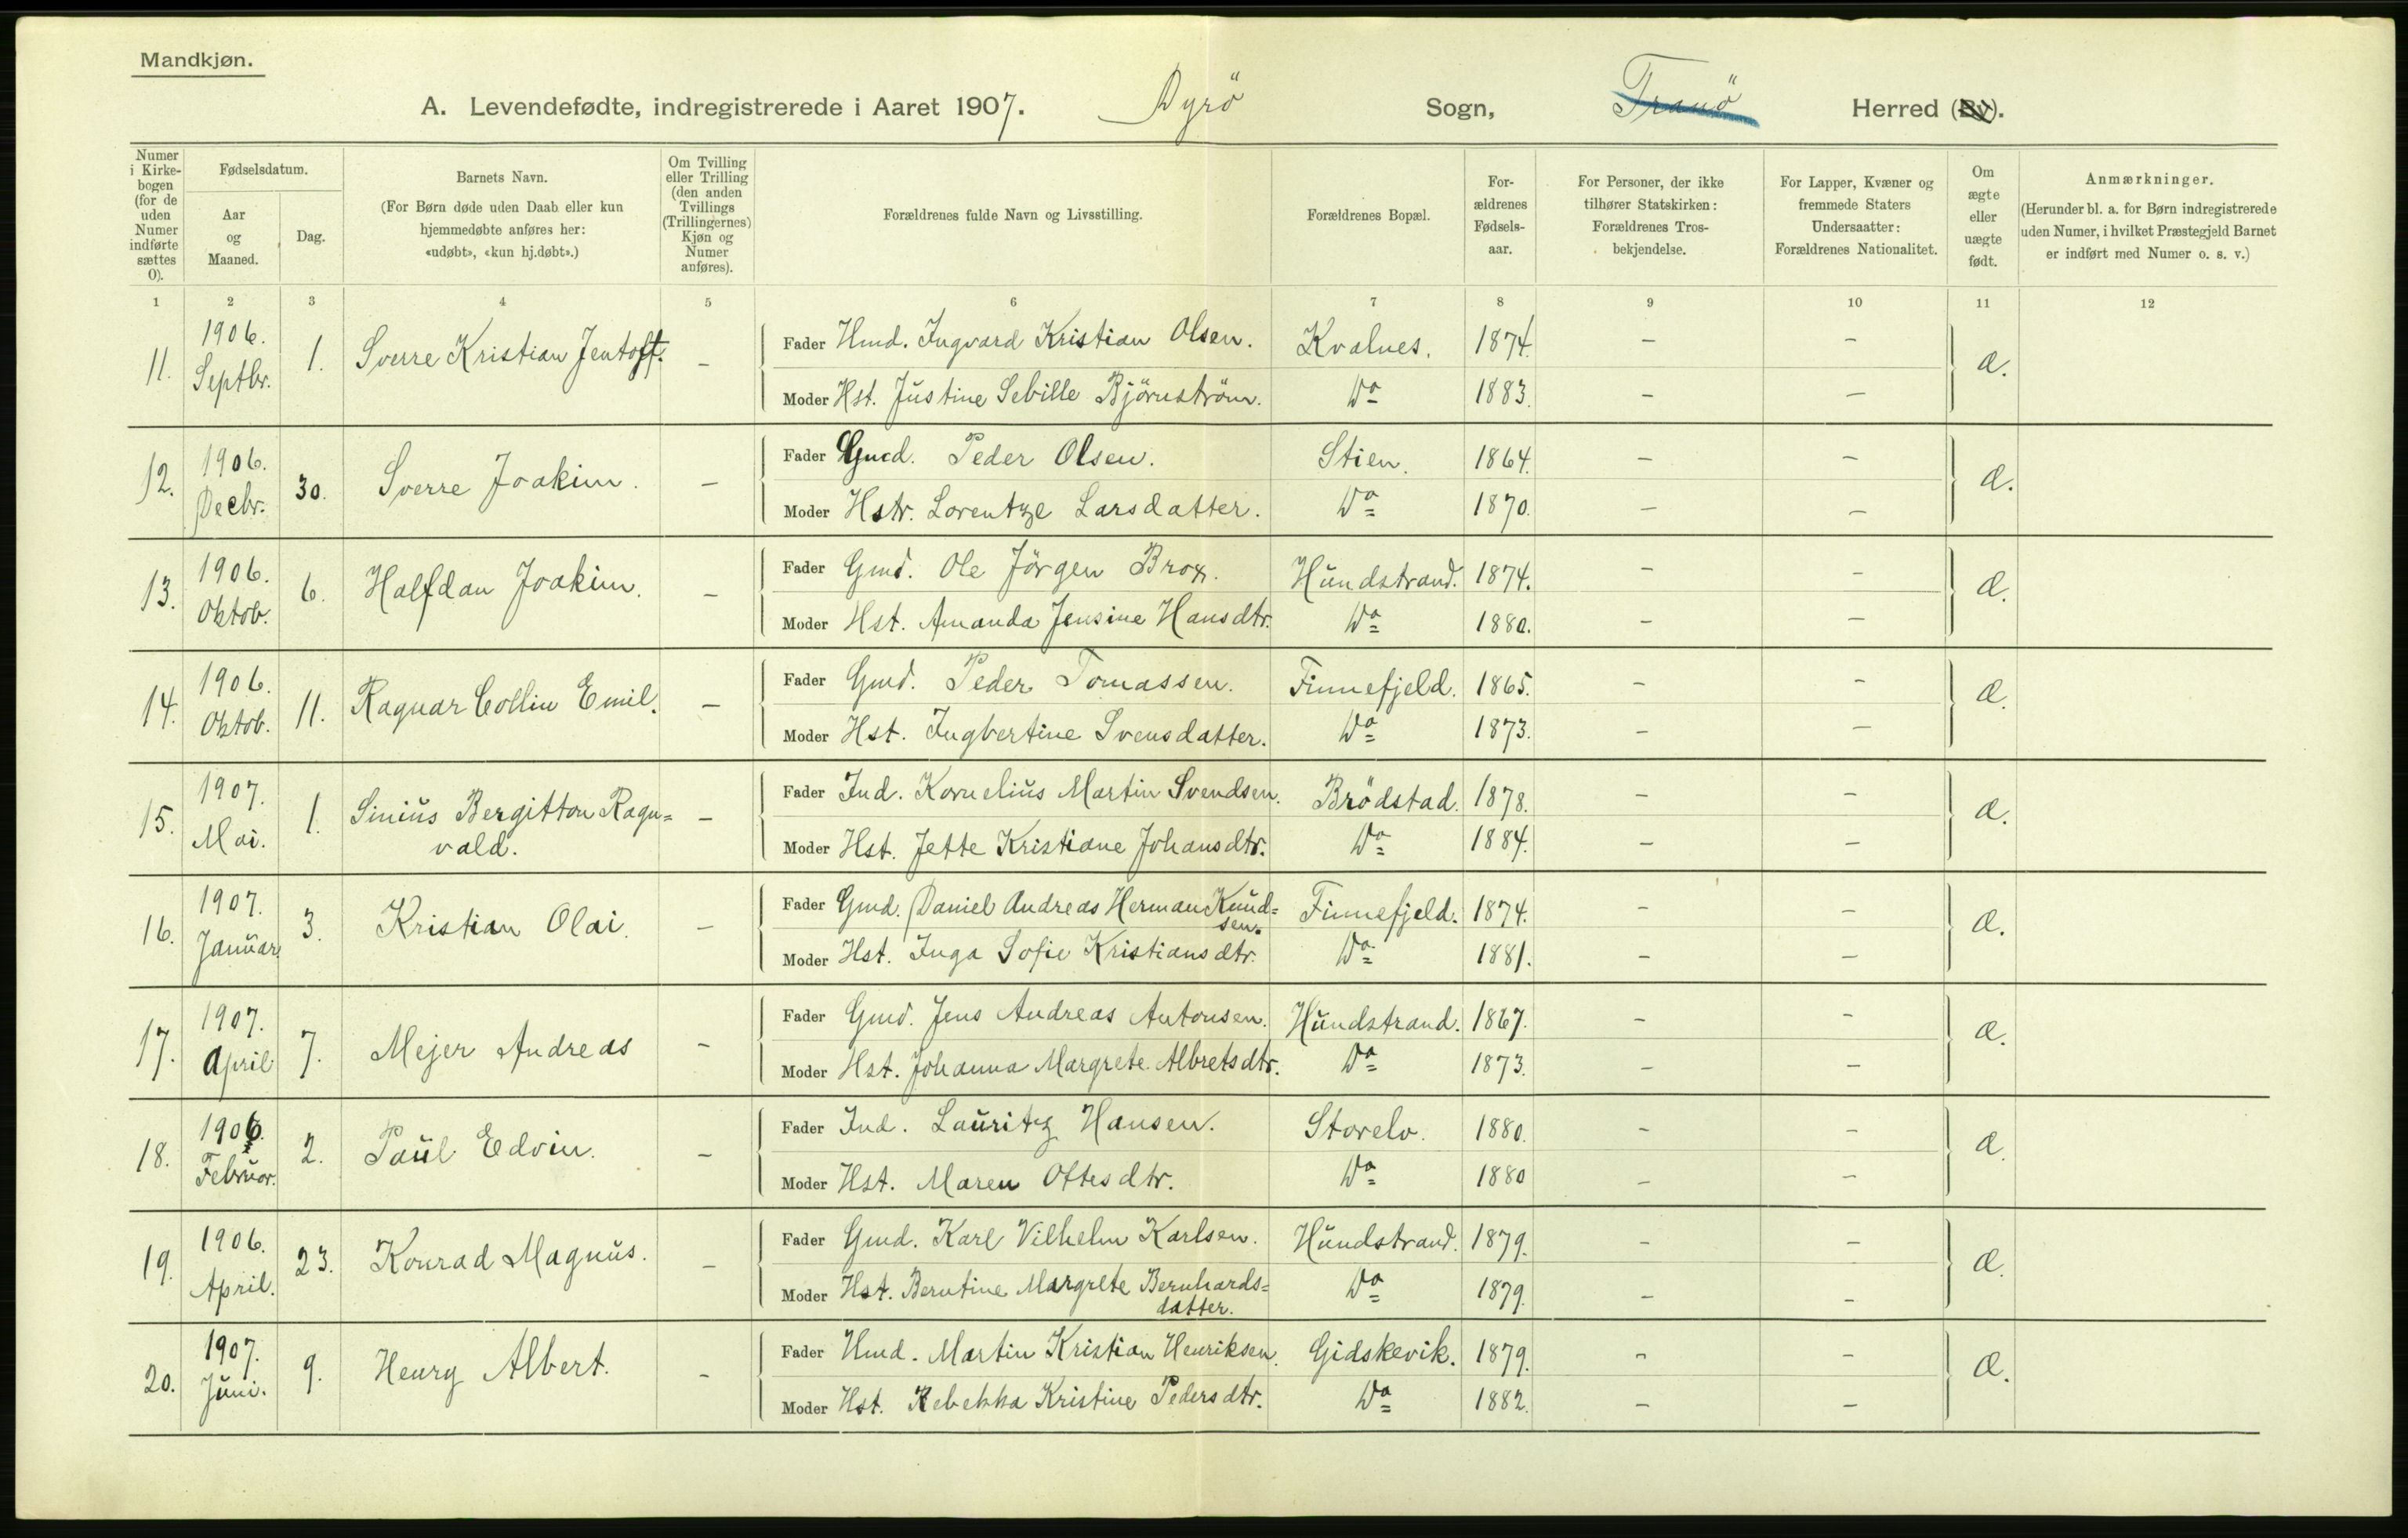 Mandkjøn.
A. Levendefødte, indregistrerede i Aaret 1907. Dyrö Sogn, Tranö Herred (By).
Numer i Kirkebogen (for de uden Numer indførte sættes 0).
Fødselsdatum.
Aar og Maaned.
Dag.
Barnets Navn.
(For Børn døde uden Daab eller kun hjemmedøbte anføres her: «udøbt», «kun hj.døbt».)
Om Tvilling eller Trilling (den anden Tvillings (Trillingernes) Kjøn og Numer anføres).
Forældrenes fulde Navn og Livsstilling.
Forældrenes Bopæl.
Forældrenes Fødselsaar.
For Personer, der ikke tilhører Statskirken: Forældrenes Trosbekjendelse.
For Lapper, Kvæner og fremmede Staters Undersaatter: Forældrenes Nationalitet.
Om ægte eller uægte født.
Anmærkninger.
(Herunder bl. a. for Børn indregistrerede uden Numer, i hvilket Præstegjeld Barnet er indført med Numer o. s. v.)
1 2 3 4 5 6 7 8 9 10 11 12
11. 1906. Septbr. 1. Sverre Kristian Jentoft. – Fader Hmd. Ingvard Kristian Olsen. Kvalnes. 1874. – – æ.
Moder Hst. Justine Sebille Björnström. Do 1883. – –
12. 1906. Decbr. 30. Sverre Joakim. – Fader Gmd. Peder Olsen. Stien. 1864. – – æ.
Moder Hstr. Lorentze Larsdatter. Do 1870. – –
13. 1906. Oktob. 6. Halfdan Joakim. – Fader Gmd. Ole Jörgen Brox. Hundstrand. 1874. – – æ.
Moder Hst. Amanda Jensine Hansdtr. Do 1880. – –
14. 1906. Oktob. 11. Ragnar Collin Emil. – Fader Gmd. Peder Tomassen. Finnefjeld. 1865. – – æ.
Moder Hst. Ingbertine Svensdatter. Do 1873. – –
15. 1907. Mai. 1. Sinius Bergitton Ragn=
vald. – Fader Ind. Kornelius Martin Svendsen. Brödstad. 1878. – – æ.
Moder Hst. Jette Kristiane Johansdtr. Do 1884. – –
16. 1907. Januar. 3. Kristian Olai. – Fader Gmd. Daniel Andreas Herman Knud=
sen. Finnefjeld. 1874. – – æ.
Moder Hst. Inga Sofie Kristiansdtr. Do 1881. – –
17. 1907. April 7. Mejer Andreas – Fader Gmd. Jens Andreas Antonsen. Hundstrand. 1867. – – æ.
Moder Hst. Johanna Margrete Albretsdtr. Do 1873. – –
18. 1906. Februar. 2. Paul Edvin. – Fader Ind. Lauritz Hansen. Storelv. 1880. – – æ.
Moder Hst. Maren Ottesdtr. Do 1880 – –
19. 1906. April. 23. Konrad Magnus. – Fader Gmd. Karl Vilhelm Karlsen. Hundstrand. 1879. – – æ.
Moder Hst. Berntine Margrete Bernhards=
datter. Do 1879. – –
20. 1907. Juni. 9. Henry Albert. – Fader Hmd. Martin Kristian Henriksen. Gidskevik. 1879. – – æ.
Moder Hst. Rebekka Kristine Pedersdtr. Do 1882. – –